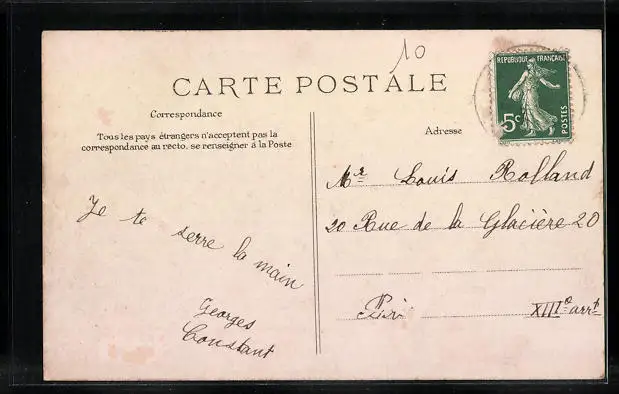 10
CARTE POSTALE
REPUBLIQUE FRANÇAISE
5c
POSTES
Correspondance
Tous les pays étrangers n'acceptent pas la
correspondance au recto, se renseigner à la Poste
Adresse
Je te serre la main
Georges
Constant
Mr Louis Rolland
20 Rue de la Glacière 20
Paris XIIIe arrt